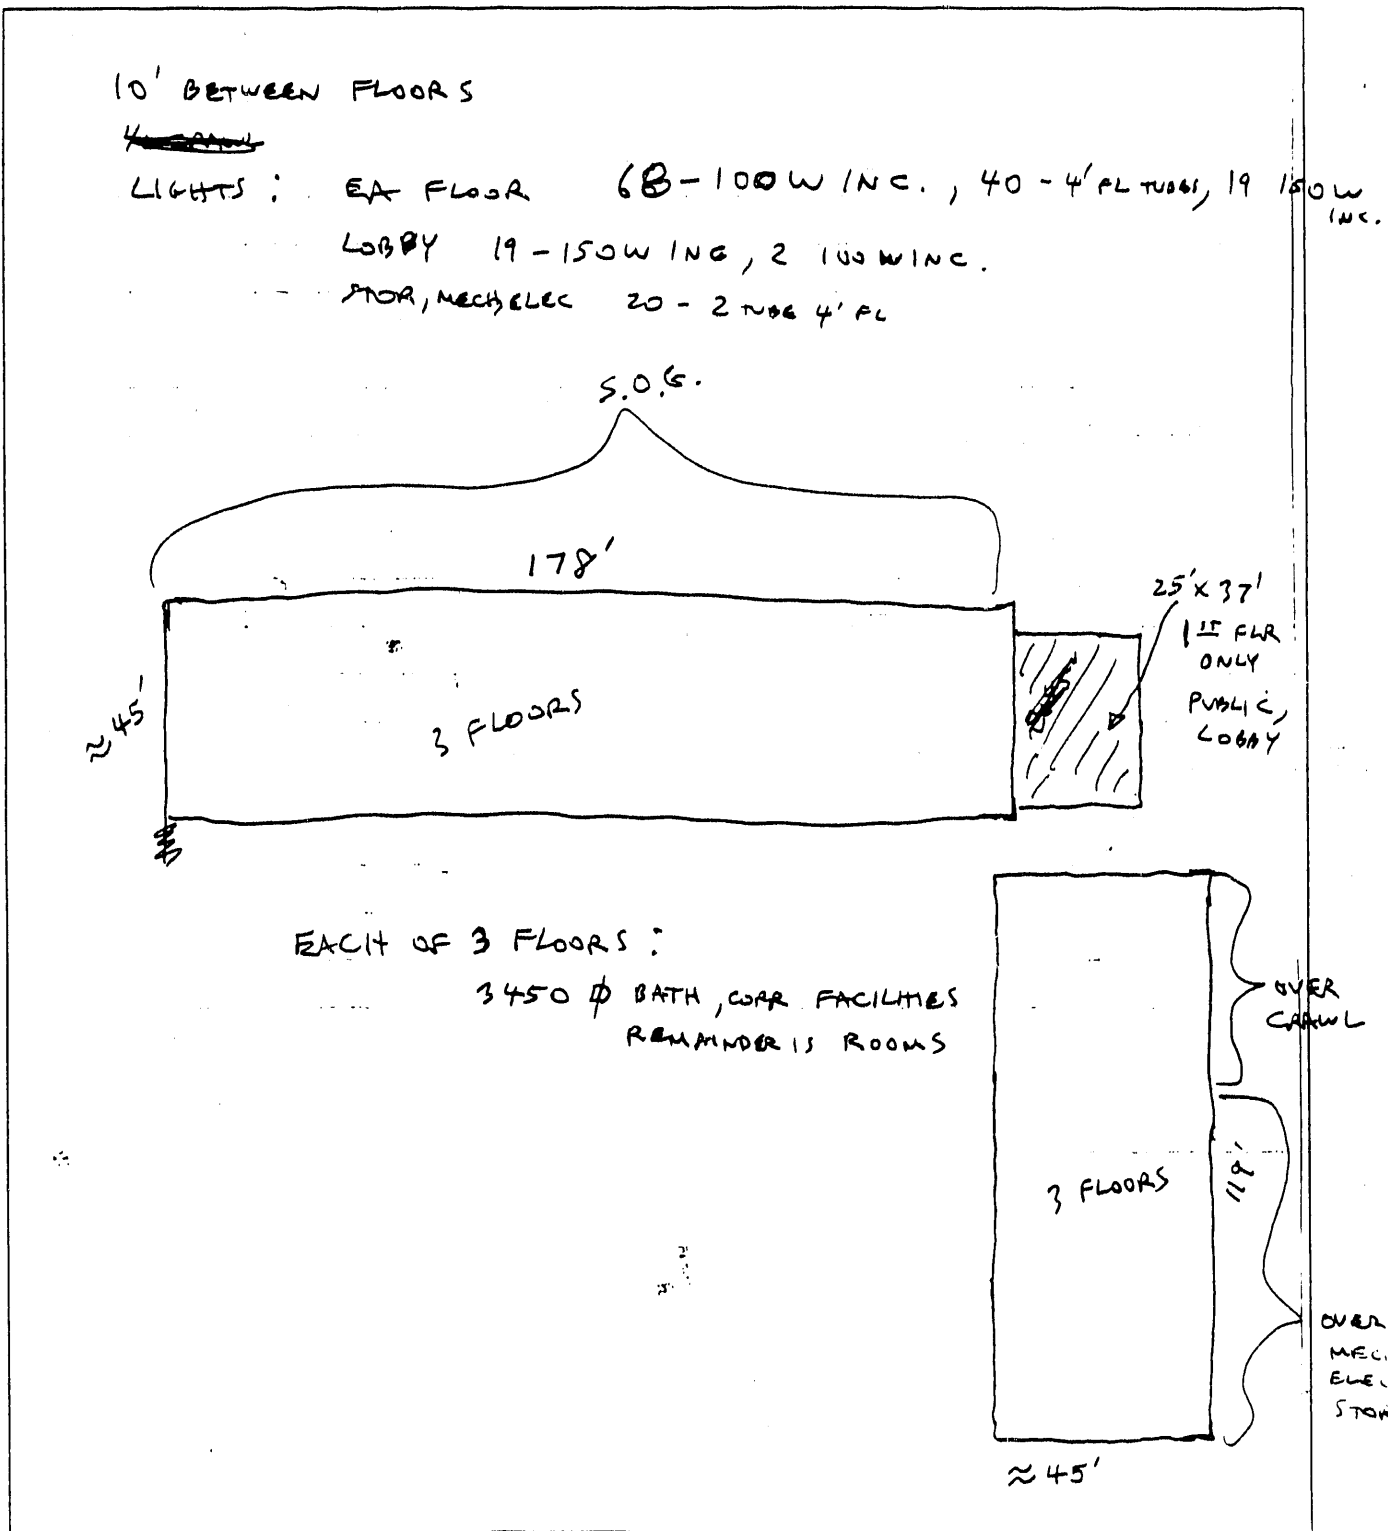 10' BETWEEN FLOORS
LIGHTS : EA FLOOR 68 - 100W INC. , 40 - 4' FL TUBES, 19 150W INC.
LOBBY 19 - 150W INC, 2 100W INC.
STOR, MECH, ELEC 20 - 2 TUBE 4' FL
S.O.G.
178'
25' X 37'
1ST FLR
ONLY
PUBLIC,
LOBBY
≈ 45'
3 FLOORS
EACH OF 3 FLOORS :
3450 ⌀ BATH, CORR FACILITIES
REMAINDER IS ROOMS
OVER
CRAWL
3 FLOORS
119'
OVER
MEC
ELE
STO
≈ 45'